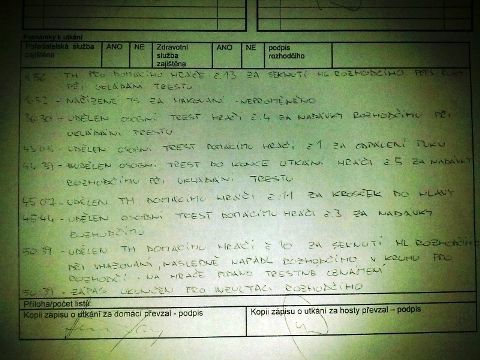 Poznámky k utkání
Pořadatelská služba zajištěna ANO NE Zdravotní služba zajištěna ANO NE podpis rozhodčího
TH PRO DOMÁCÍHO HRÁČE Č.13 ZA SEKNUTÍ HL. ROZHODČÍHO PŘES RUKY
PŘI UKLÁDÁNÍ TRESTU
NAŘÍZENÉ TS ZA HÁKOVÁNÍ - NEPROMĚNĚNO
36:30 - UDĚLEN OSOBNÍ TREST HRÁČI Č.4 ZA NADÁVKY ROZHODČÍMU PŘI
UKLÁDÁNÍ TRESTU
43:03 - UDĚLEN OSOBNÍ TREST DOMÁCÍMU HRÁČI Č.1 ZA ODPÁLENÍ PUKU
44:39 - UDĚLEN OSOBNÍ TREST DO KONCE UTKÁNÍ HRÁČI Č.5 ZA NADÁVKY
ROZHODČÍMU PŘI UKLÁDÁNÍ TRESTU
45:07 - UDĚLEN TH DOMÁCÍMU HRÁČI Č.11 ZA KROSČEK DO HLAVY
45:44 - UDĚLEN OSOBNÍ TREST DOMÁCÍMU HRÁČI Č.3 ZA NADÁVKY
ROZHODČÍMU
50:39 - UDĚLEN TH DOMÁCÍMU HRÁČI Č.10 ZA SEKNUTÍ HL. ROZHODČÍHO
PŘI VHAZOVÁNÍ NÁSLEDNĚ NAPADL ROZHODČÍHO V KRUHU PRO
ROZHODČÍ - NA HRÁČE PODÁNO TRESTNÍ OZNÁMENÍ
50:39 - ZÁPAS UKONČEN PRO INZULTACI ROZHODČÍHO
Příloha/počet listů:
Kopii zápisu o utkání za domácí převzal - podpis Kopii zápisu o utkání za hosty převzal – podpis